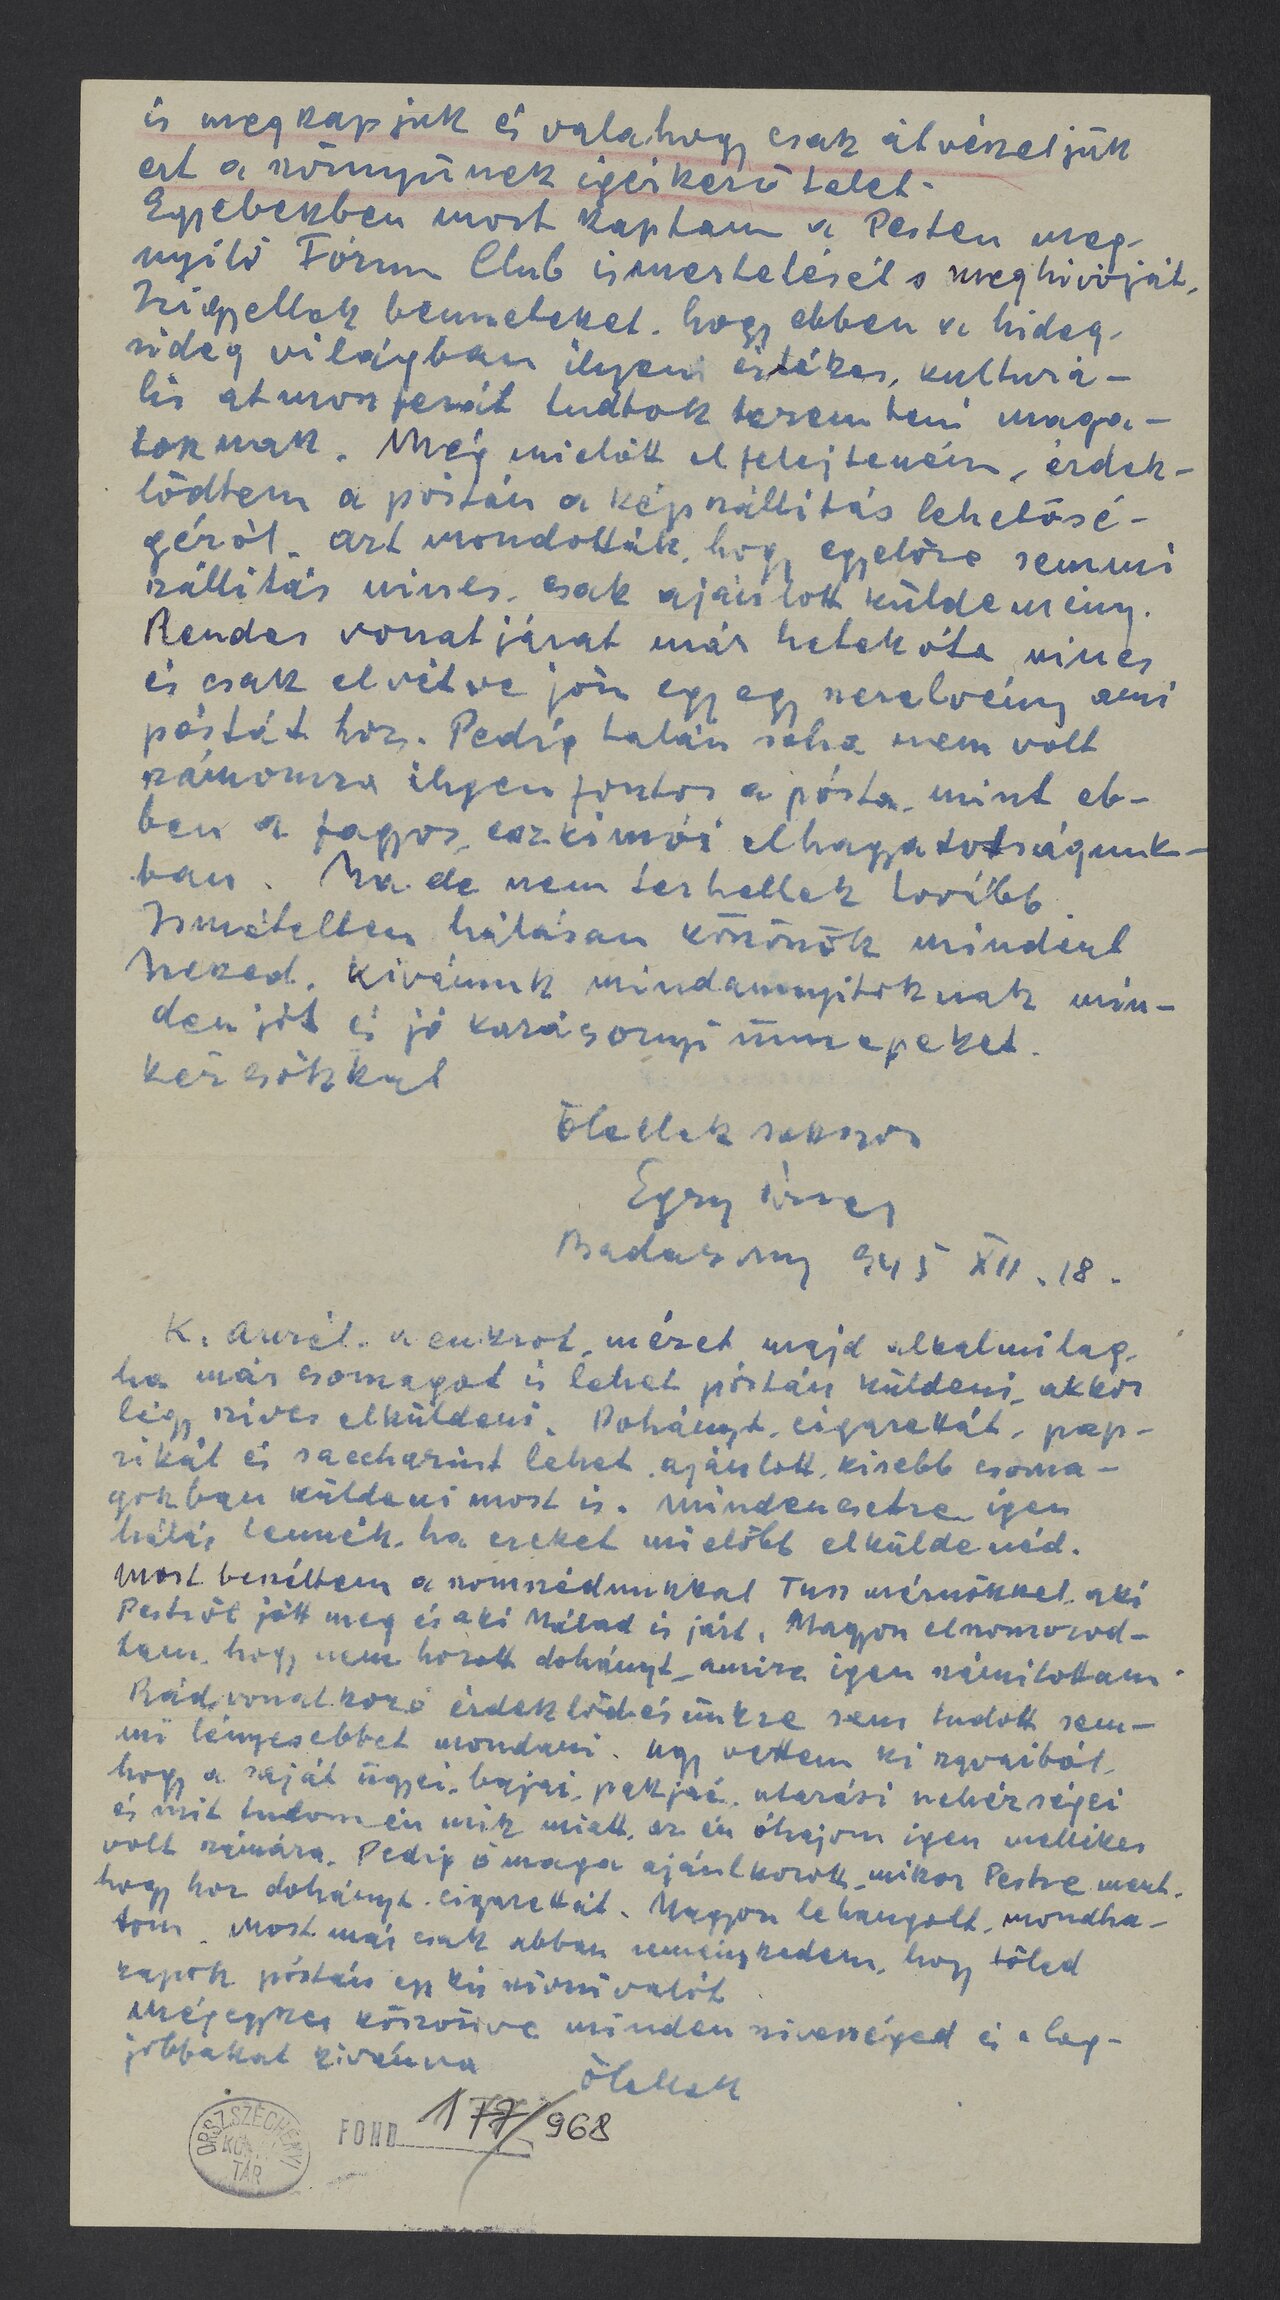 is megkapjuk és valahogy csak átvészeljük
ezt a szörnyűnek igérkező telet.
Egyebekben most kaptam a Pesten meg-
nyiló Fórum Club ismertetését s meghivóját.
Irigyellek benneteket, hogy ebben a hideg-
rideg világban ilyen értékes, kulturá-
lis atmoszferát tudtok teremteni maga-
toknak. Még mielőtt elfelejteném, érdek-
lődtem a póstán a képszállitás lehetősé-
géről, azt mondották, hogy egyelőre semmi
szállitás nincs, csak ajánlott küldemény.
Rendes vonatjárat már hetek óta nincs
és csak elvétve jön egy egy szerelvény ami
póstát hoz. Pedig talán soha nem volt
számomra ilyen fontos a pósta, mint eb-
ben a fagyos, eszkimói elhagyatotságunk-
ban. Na de nem terhellek tovább.
Ismételten hálásan köszönök mindent
Neked. Kivánunk mindannyitoknak min-
den jót és jó karácsonyi ünnepeket.
Kézcsókkal
Ölellek sokszor
Egry József
Badacsony 945 XII. 18.
K. Aurél. a cukrot, mézet majd alkalmilag,
ha már csomagot is lehet póstán küldeni, akkor
légy szives elküldeni. Dohányt, cigarettát, pap-
rikát és saccharint lehet, ajánlott, kisebb csoma-
gokban küldeni most is. Mindenesetre igen
hálás lennék, ha ezeket mielőbb elküldenéd.
Most beszéltem a szomszédunkkal Tuss mérnökkel, aki
Pestről jött meg és aki Nálad is járt. Nagyon elszomorod-
tam, hogy nem hozott dohányt, amire igen számitottam.
Rád vonatkozó érdeklődésünkre sem tudott sem-
mi lényegesebbet mondani. Ugy vettem ki szavaiból,
hogy a saját ügyei, bajai, pakjai, utazási nehézségei
és mit tudom én mik miatt, az én óhajom igen mellékes
volt számára. Pedig ő maga ajánlkozott, mikor Pestre ment,
hogy hoz dohányt, cigarettát. Nagyon lehangolt, mondha-
tom. Most már csak abban reménykedem, hogy tőled
kapok póstán egy kis szivnivalót.
Mégegyszer köszönve minden szivességed és a leg-
jobbakat kivánva
ölellek
ORSZ. SZÉCHÉNYI
KÖNYV
TÁR
FOND 177/968